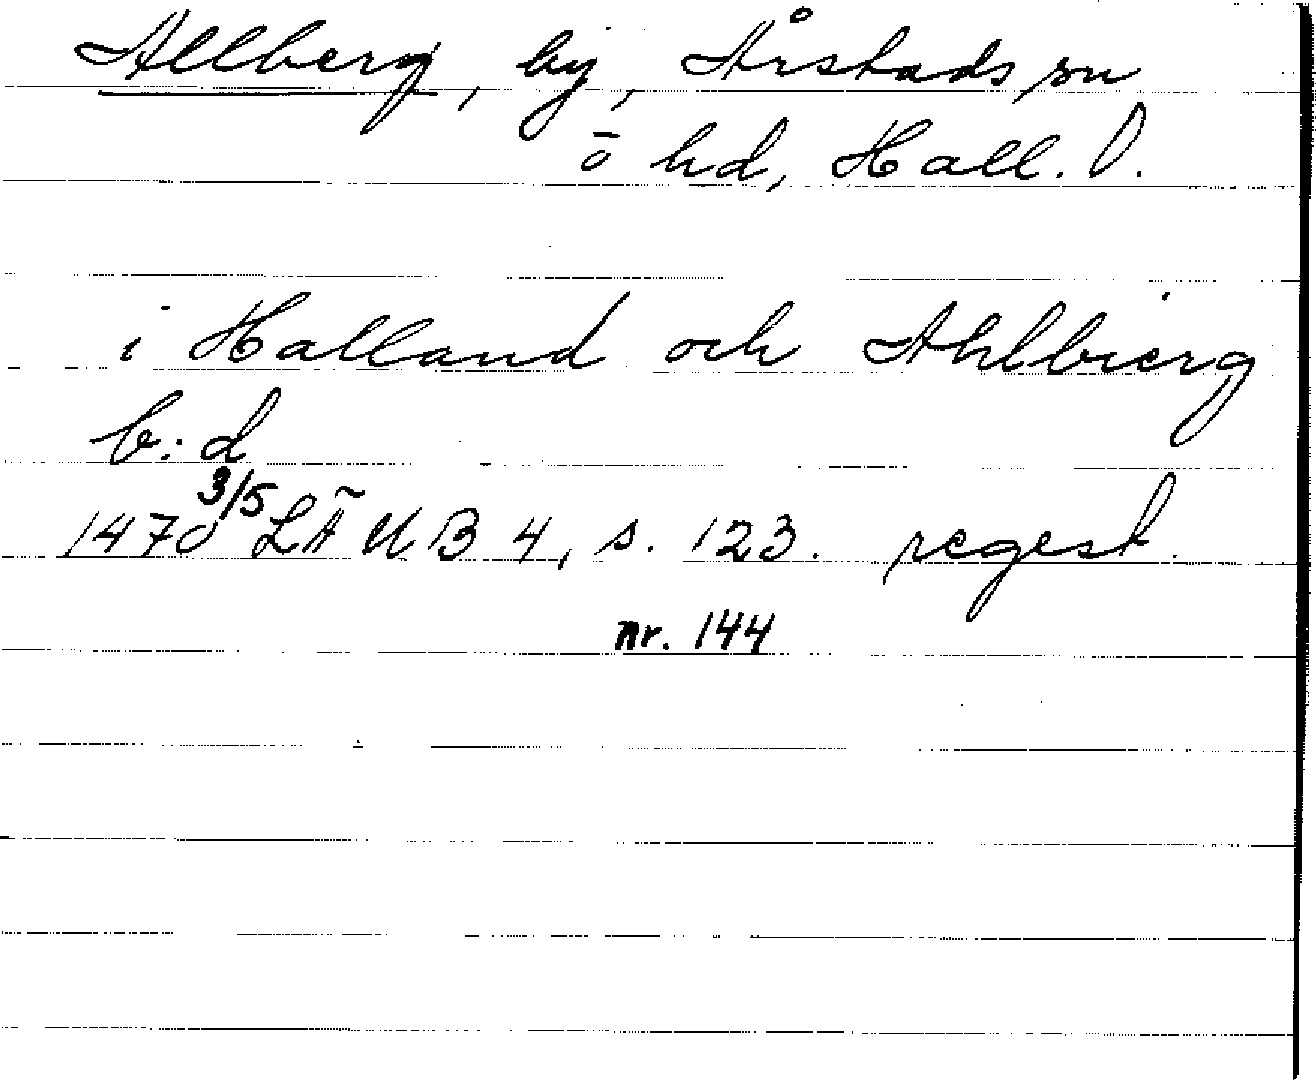 Allberg, by, Årstads sn
o hd, Hall. l.
i Halland och Ahlbierg
b:d
1470 3/5 LÄUB 4, s. 123. regest.
nr. 144